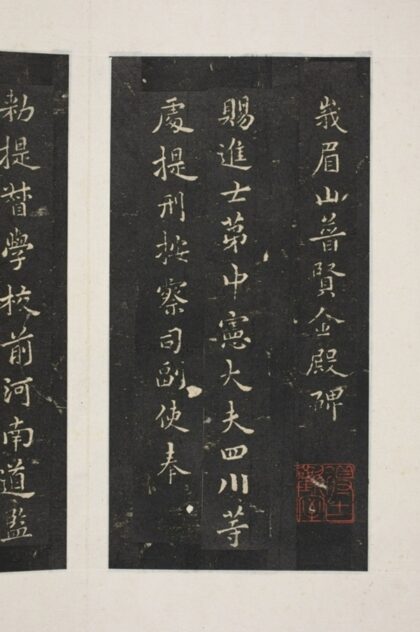 峩眉山普賢金殿碑
賜進士第中憲大夫四川等
處提刑按察司副使奉
勑提督學校前河南道監